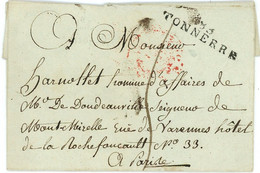 TONNERRE
Monsieur
Harmollet homme d'affaires de
Mr. De Doudeauville Seigneur de
Mont-Mirelle Rue de Varennes hôtel
de la Rochefoucault No. 33.
A Paris